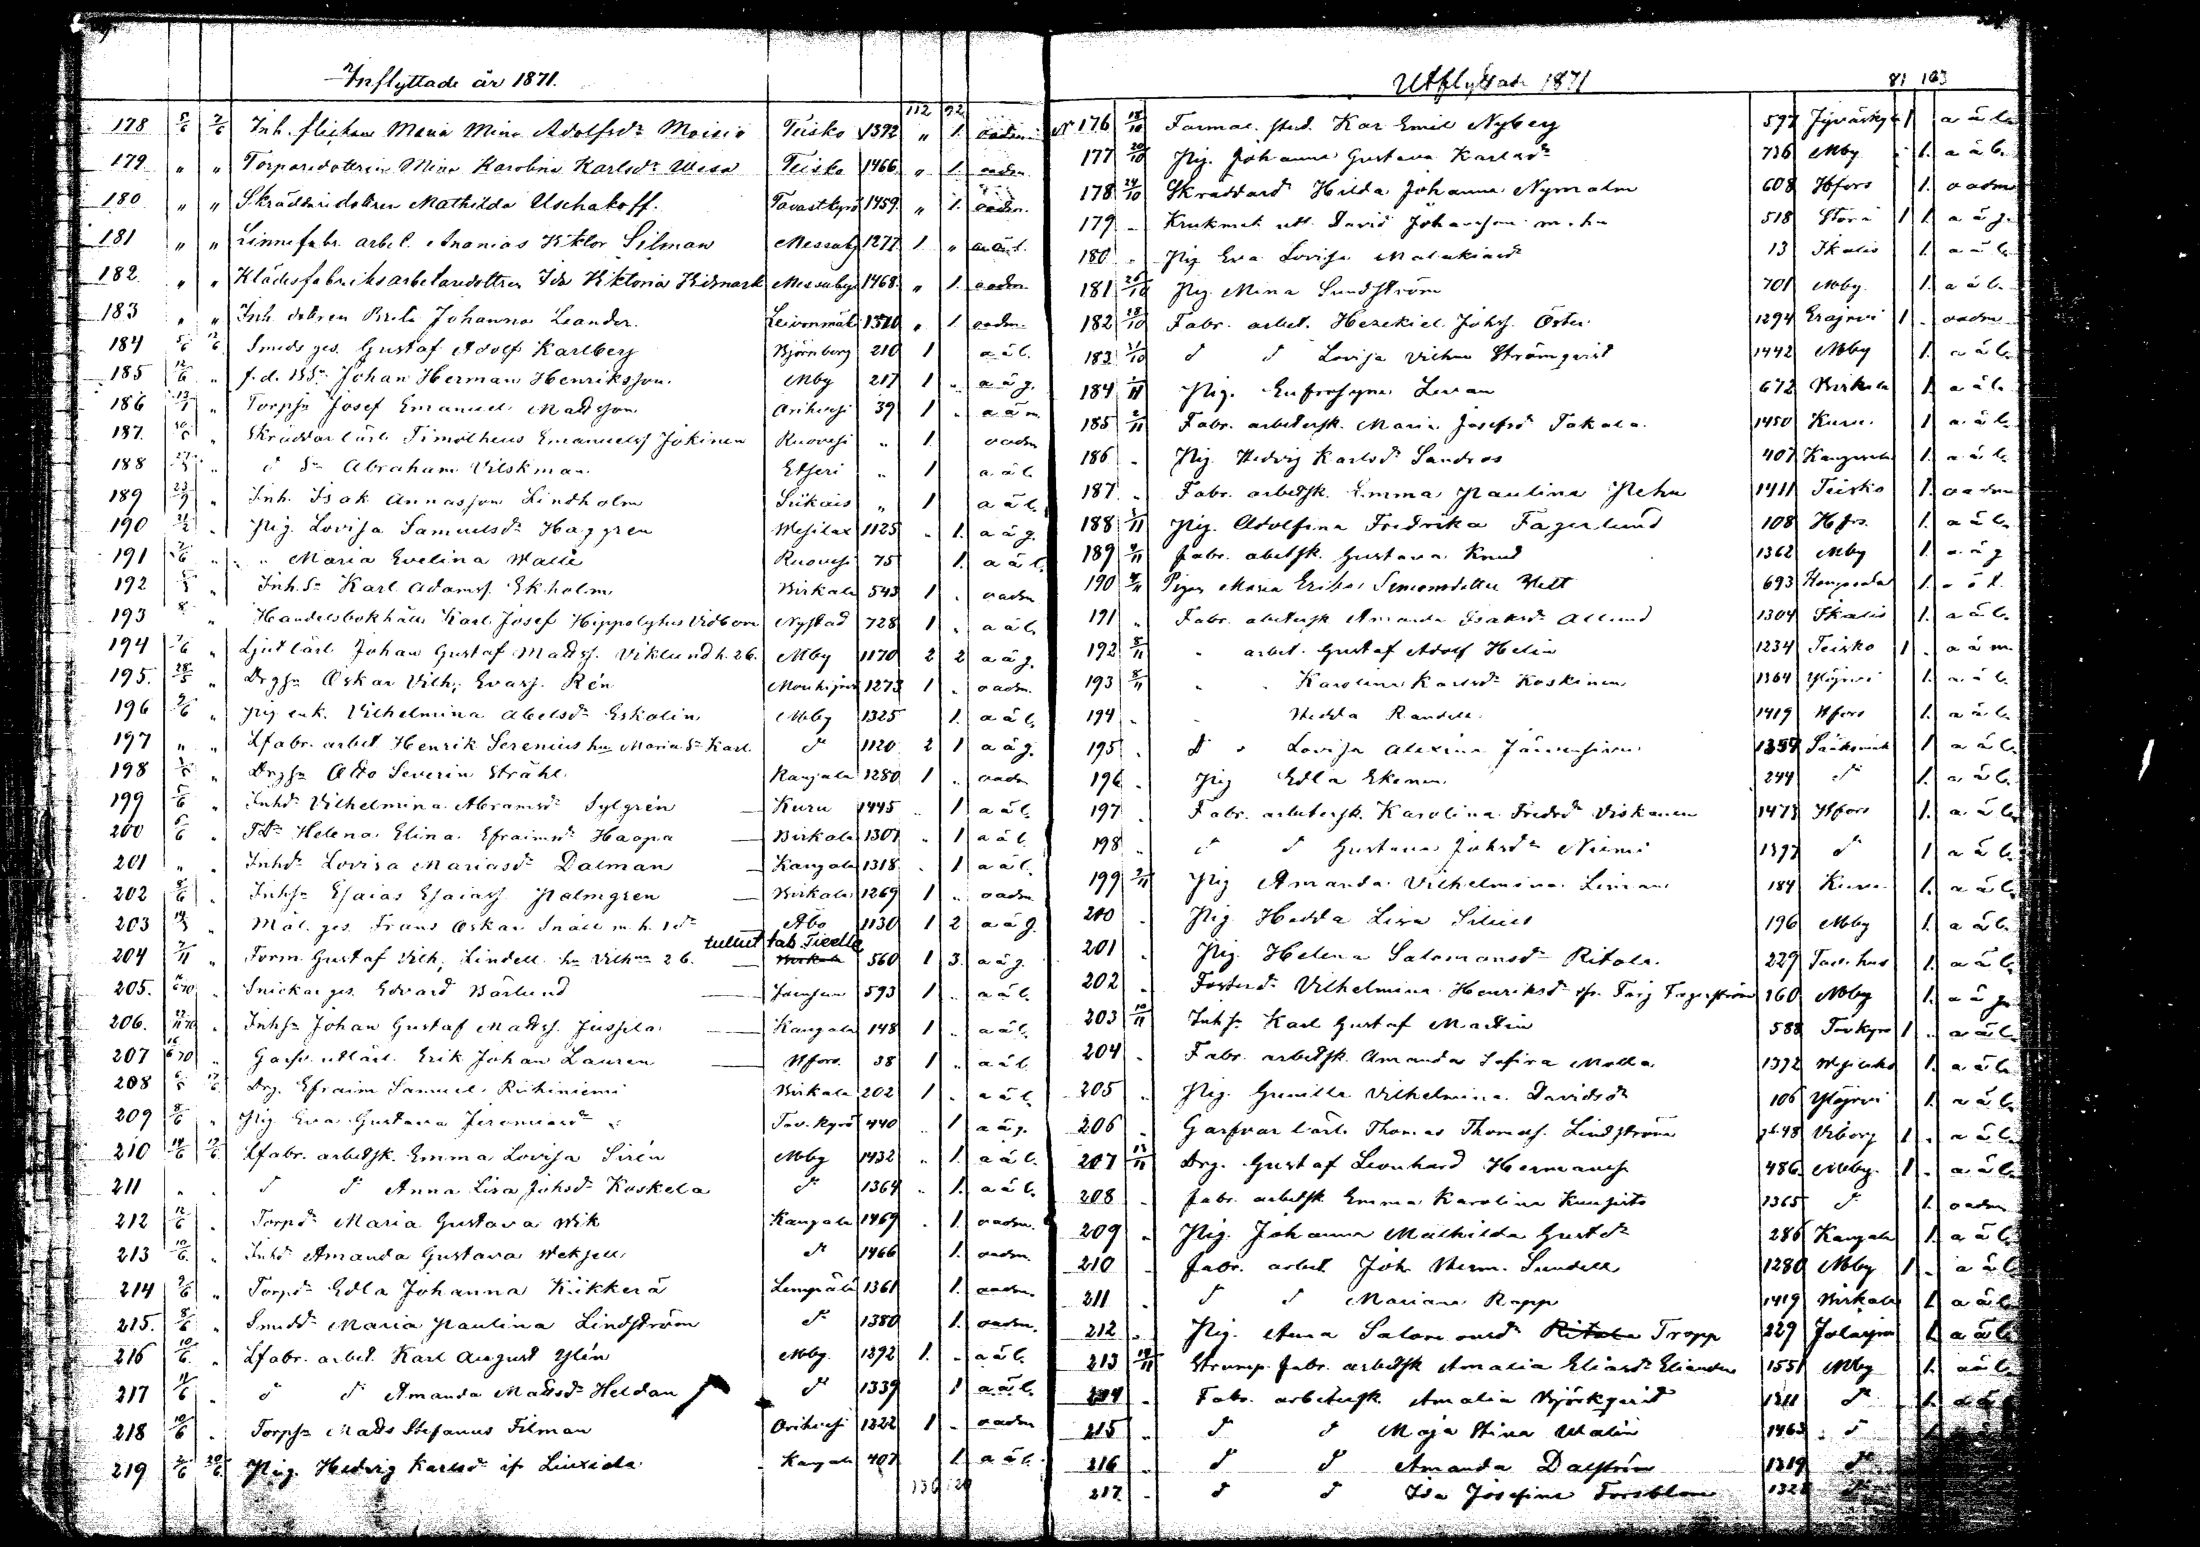 Inflyttade år 1871.
112 92
178 5/6 7/6 Inh. flickan Maria Mina Adolfsdr Moisio Teisko 1392 " 1. oadm.
179 " " Torparedottren Mina Karolina Karlsdr Wesa Teisko 1466 " 1. oadm.
180 " " Skräddaredottren Mathilda Uschakoff. Tavastkyrö 1459. " 1. oadm.
181 " " Linnefabr. arbet. Ananias Viktor Silman Messuby 1277 1 " a ä l.
182. " " Klädesfabriksarbetaredottren Ida Viktoria Widmark Messuby 1468. " 1. oadm.
183 " " Inh. dottren Brita Johanna Leander. Leivonmäki 1510 " 1. oadm.
184 Smeds ges. Gustaf Adolf Karlberg Björneborg 210 1 a ä l.
185 12/6 " f.d. Johan Herman Henriksson. Mby 217 1 " a ä g.
186 " Torpsn Josef Emanuel Mattsson Orihvesi 39 1 " a ä m.
187. " Skräddar lärl. Timotheus Emanuelss Jokinen Ruovesi " 1. oadm
188 " d sn Abraham Vilskman Etseri " 1 a ä l.
189 " Inh. Isak Annasson Lindholm Siikais " 1 a ä l.
190 " Pig. Lovisa Samuelsdr Haggren Vesilax 1125 " 1. a ä g.
191 7/6 " " Maria Evelina Walli Ruovesi 75 1. a ä l.
192 " Inh.sn Karl Adamss. Ekholm Birkala 543 1 " oadm
193 " Handelsbokhåll. Karl Josef Hippolytus Vidbom Nystad 728 1 " a ä l.
194 7/6 " Ljut lärl. Johan Gustaf Mattss. Viklund h. 2 b. Mby 1170 2 2 a ä g.
195. 28/5 " Drgsn Oskar Vilh. Evass. Rén Mouhijärvi 1273 1 " oadm.
196 " Pig enk. Vilhelmina Abelsdr Eskolin Mby 1325 1. a ä l.
197 " " Lfabr. arbet Henrik Serenius hu Maria sn Karl d 1120 2 1 a ä g.
198 " Drgsn Otto Severin Stråhl. Kangala 1280 1 " oadm
199 5/6 " Inhdr Vilhelmina Abramsdr Sylgrén Kuru 1445 1 a ä l.
200 5/6 " Tdr Helena Elina Efraimsdr Haapa Birkala 1307 " 1 a ä l.
201 " " Inhdr Lovisa Mariasdr Dalman Kangala 1318 1 a ä l.
202 8/6 " Inhsn Esaias Esaiass. Palmgren Birkala 1269 1 " oadm.
203 " Mål. ges. Frans Oskar Snäll m. h. 1 dr Åbo 1130 1 2 a ä g.
tullut tak. Tielle
204 7/11 " Form. Gustaf Vilh. Lindell hu Vilhna 2 b. Birkala 560 1 3. a ä g.
205. " Snickar ges. Edvard Bärlund 593 1 " a ä l.
206. " Inhsn Johan Gustaf Mattss. Jussila Kangala 148 1 " a ä l.
207 " Garfv. utlärl. Erik Johan Lauren Hfors. 38 1 " a ä l.
208 Drg. Efraim Samuel. Riihiniemi Birkala 202 1 " a ä l.
209 8/6 " Pig Eva Gustava Jeremiasdr Tav. kyrö 440 " 1 a ä g.
210 14/6 17/6 Lfabr. arbetsk. Emma Lovisa Sirén Mby 1432 " 1. a ä l.
211 " " d d Anna Lisa Johsdr Koskela d 1364 " 1. a ä l.
212 12/6 " Torpdr Maria Gustava Wik Kangala 1469 " 1. oadm.
213 10/6 " Inhdr Amanda Gustava Weksell d 1466 1. oadm.
214 9/6 " Torpdr Edla Johanna Kiikkerä Lempälä 1361 1. oadm.
215. 8/6 " Smeddr Maria Paulina Lindström d 1380 1. oadm.
216 10/6 " Lfabr. arbet. Karl August Ylén Mby. 1392 1. " a ä l.
217 11/6 " d d Amanda Mattsdr Heldan d 1339 1 a ä l.
218 10/6 " Torpsn Matts Stefanus Filman Orihvesi 1322 1 " oadm
219 2/6 20/6 Pig. Hedvig Karlsdr if Liuxiala Kangala 407 1. a ä l.
136 120
Utflyttade 1871
81 103
N 176 18/10 Farmac. stud. Kar Emil Nyberg 597 Jyväskyl 1 a ä l.
177 20/10 Pig. Johanna Gustava Karlsdr 736 Mby 1. a ä l.
178 24/10 Skräddardr Hilda Johanna Nymalm 608 Hfors 1. oadm
179 " Krukmak. utl. David Johansson m. hu 518 Storå 1 1. a ä g.
180 " Pig Eva Lovisa Malakiasdr 13 Ikalis 1. a ä l.
181 26/10 Pig. Mina Sundström 701 Mby. 1. a ä l.
182 28/10 Fabr. arbet. Hezekiel Johss. Öster 1294 Erajärvi 1 " oadm
183 31/10 d d Lovisa Vilhna Strömqvist 1442 Mby 1. a ä l.
184 1/11 Pig. Eufrosyne Levan 672 Birkala 1. a ä l.
185 2/11 Fabr. arbetersk. Maria Josefsdr Takala 1450 Kuru. 1 a ä l.
186 " Pig. Hedvig Karlsdr Sandros 407 Kangasala 1. a ä l.
187 " Fabr. arbetsk. Emma Paulina Pehu 1411 Teisko 1. oadm
188 3/11 Pig. Adolfina Fredrika Fagerlund 108 Hfrs. 1. a ä l.
189 4/11 Fabr. abetsk. Gustava Knud 1362 Mby 1. a ä g
190 4/11 Pigan Maria Erika Simonsdotter Helt 693 Kangasala 1. a ä l.
191 " Fabr. abetersk Amanda Isaksdr Allund 1304 Ikalis 1. a ä l.
192 8/11 " arbet. Gustaf Adolf Helin 1234 Teisko 1 " a ä m.
193 8/11 " " Karolina Karlsdr Koskinen 1364 Ylöjärvi 1. a ä l.
194 " " Hedda Randell 1419 Hfors 1. a ä l.
195 " d " Lovisa Alexina 1354 Sääksmäk 1 a ä l.
196 " Pig Edla Ekman 244 d 1. a ä l.
197 " Fabr. arbetersk. Karolina Fredrdr Viskanen 1473 Hfors 1. a ä l.
198 " d d Gustava Johsdr Niemi 1397 d 1 a ä l.
199 9/11 Pig Amanda Vilhelmina Liman 184 Kuru 1. a ä l.
200 " Pig Hedda Lisa Silius 196 Mby 1. a ä l.
201 " Pig Helena Salomonsdr Ritala. 229 Tav. hus 1. a ä l.
202 " Fosterdr Vilhelmina Henriksdr Fagerström 160 Mby 1. a ä g.
203 10/11 Inhsn Karl Gustaf Martin 588 Tavkyro 1 " a ä l.
204 " Fabr. arbetsk. Amanda Sofira Matka 1372 Vesilaks 1. a ä l.
205 " Pig. Gunilla Vilhelmina Davidsdr 106 Ylöjrvi 1. a ä l.
206 " Garfvar lärl. Thomas Thomass. Lindström Viborg 1 " a ä l.
207 13/11 Drg. Gustaf Leonhard Hermanss 486 Mby. 1 " a ä l.
208 " Fabr. arbetsk Emma Karolina Kuusisto 1365 d 1. oadm
209 " Pig. Johanna Mathilda Gustdr 286 Kangala 1. a ä l.
210 " Fabr. arbet. Joh. Herm. Sundell 1280 Mby 1 " a ä l
211 " d d Mariana Rapp 1419 Birkala 1. a ä l.
212 " Pig. Anna Salomonsdr Ritala Trapp 229 Jalasjrvi 1. a ä l.
213 14/11 Strump. fabr. arbetsk Amalia Eliasdr Eliander 1551 Mby 1. a ä l.
214 " Fabr. arbetersk. Amalia Björkqvist 1311 d 1. a ä l
215 " d d Maja Stina Walin 1463 d
216 " d d Amanda Dalström 1319 d
217 " d d Ida Josefina Forsblom 132 d